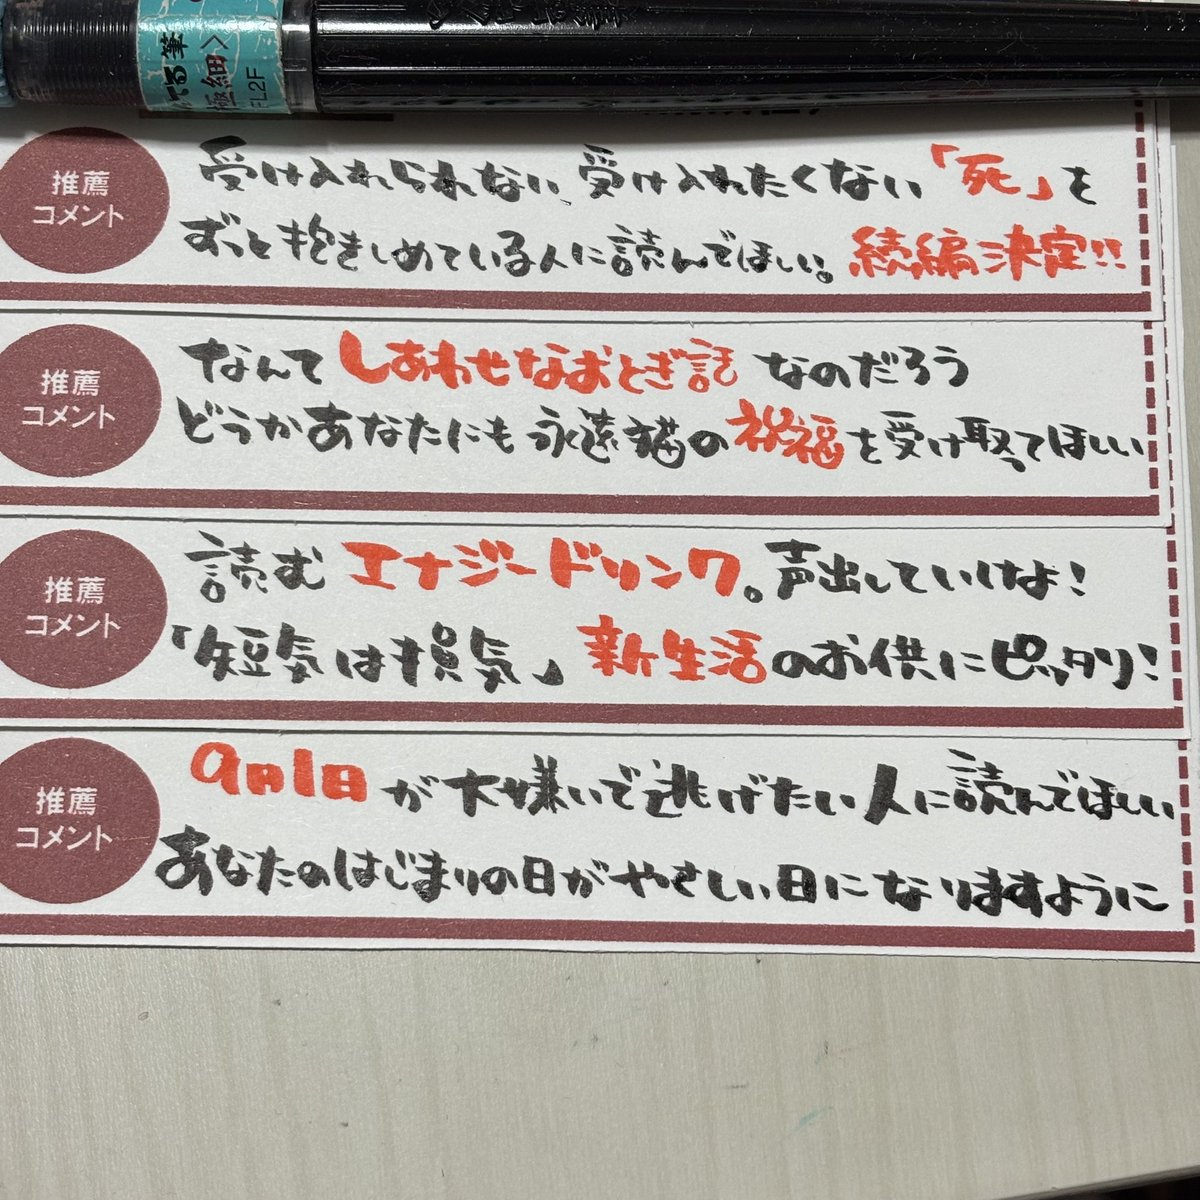 筆
極細〉
FL2F
推薦
コメント
受け入れられない、受け入れたくない「死」を
ずっと抱きしめている人に読んでほしい。続編決定!!
推薦
コメント
なんてしあわせなおとぎ話なのだろう
どうかあなたにも永遠猫の祝福を受け取ってほしい
推薦
コメント
読むエナジードリンク。声出していけよ!
「短気は損気」新生活のお供にピッタリ!
推薦
コメント
9月1日が大嫌いで逃げたい人に読んでほしい
あなたのはじまりの日がやさしい日になりますように